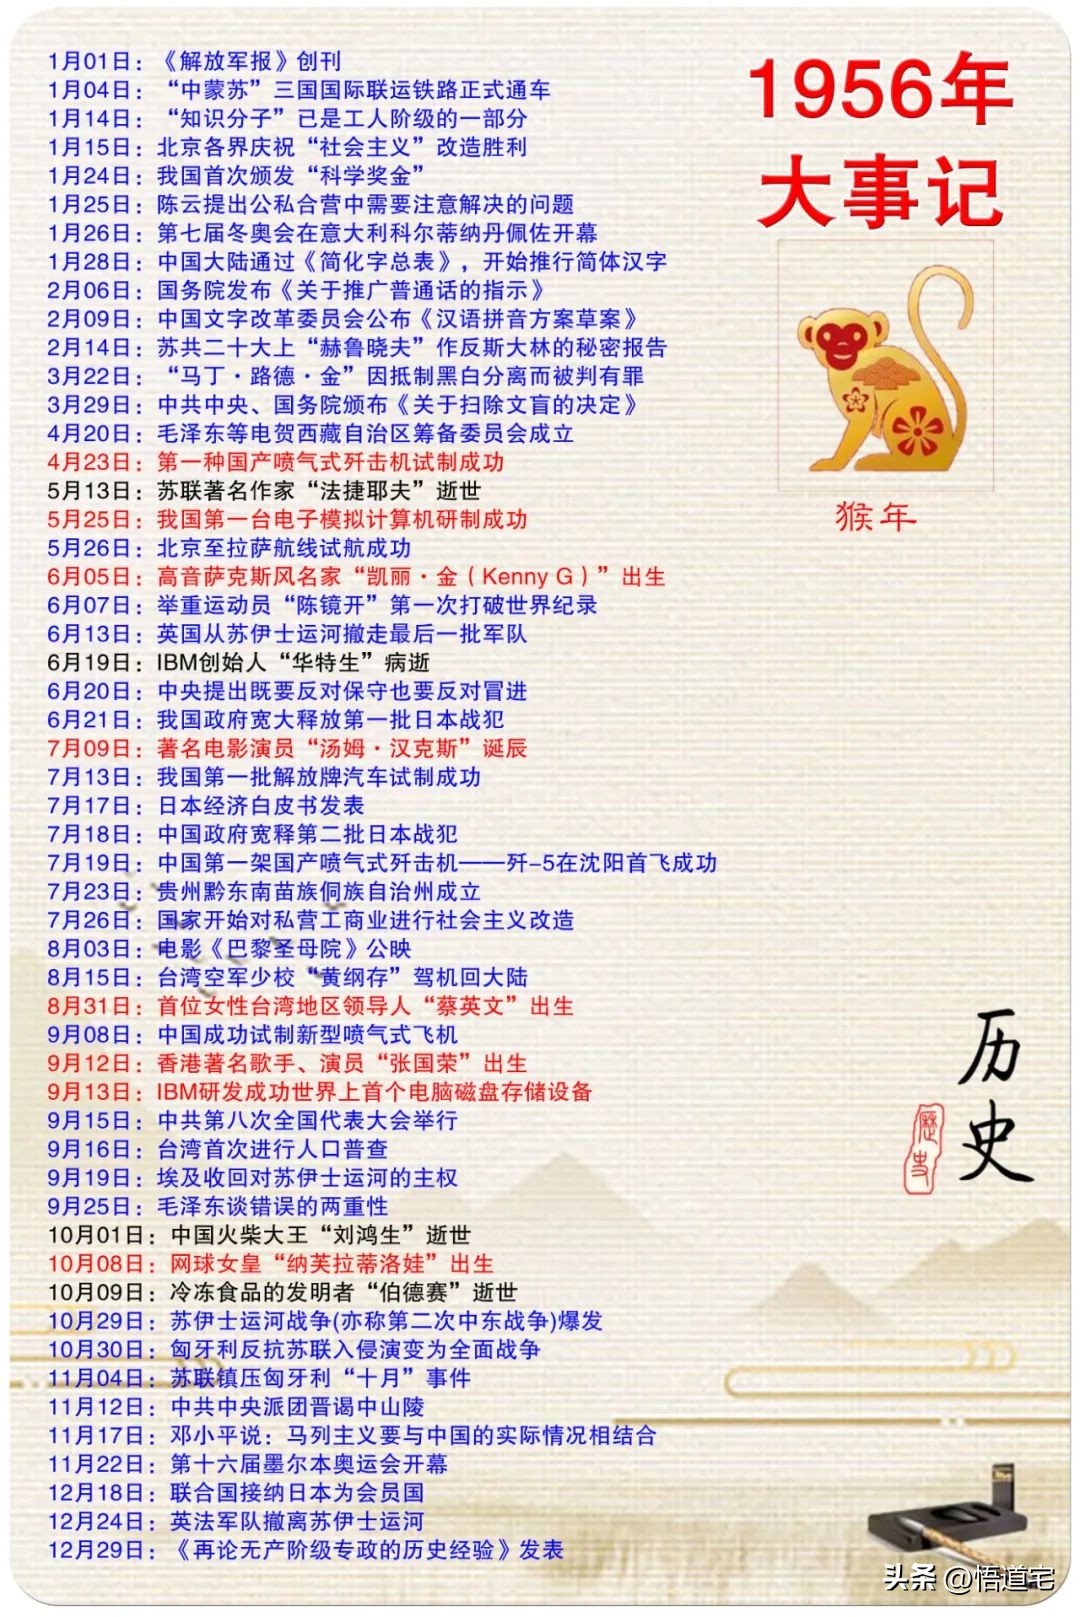 1月01日：《解放军报》创刊
1月04日：“中蒙苏”三国国际联运铁路正式通车
1月14日：“知识分子”已是工人阶级的一部分
1月15日：北京各界庆祝“社会主义”改造胜利
1月24日：我国首次颁发“科学奖金”
1月25日：陈云提出公私合营中需要注意解决的问题
1月26日：第七届冬奥会在意大利科尔蒂纳丹佩佐开幕
1月28日：中国大陆通过《简化字总表》，开始推行简体汉字
2月06日：国务院发布《关于推广普通话的指示》
2月09日：中国文字改革委员会公布《汉语拼音方案草案》
2月14日：苏共二十大上“赫鲁晓夫”作反斯大林的秘密报告
3月22日：“马丁·路德·金”因抵制黑白分离而被判有罪
3月29日：中共中央、国务院颁布《关于扫除文盲的决定》
4月20日：毛泽东等电贺西藏自治区筹备委员会成立
4月23日：第一种国产喷气式歼击机试制成功
5月13日：苏联著名作家“法捷耶夫”逝世
5月25日：我国第一台电子模拟计算机研制成功
5月26日：北京至拉萨航线试航成功
6月05日：高音萨克斯风名家“凯丽·金（Kenny G）”出生
6月07日：举重运动员“陈镜开”第一次打破世界纪录
6月13日：英国从苏伊士运河撤走最后一批军队
6月19日：IBM创始人“华特生”病逝
6月20日：中央提出既要反对保守也要反对冒进
6月21日：我国政府宽大释放第一批日本战犯
7月09日：著名电影演员“汤姆·汉克斯”诞辰
7月13日：我国第一批解放牌汽车试制成功
7月17日：日本经济白皮书发表
7月18日：中国政府宽释第二批日本战犯
7月19日：中国第一架国产喷气式歼击机——歼-5在沈阳首飞成功
7月23日：贵州黔东南苗族侗族自治州成立
7月26日：国家开始对私营工商业进行社会主义改造
8月03日：电影《巴黎圣母院》公映
8月15日：台湾空军少校“黄纲存”驾机回大陆
8月31日：首位女性台湾地区领导人“蔡英文”出生
9月08日：中国成功试制新型喷气式飞机
9月12日：香港著名歌手、演员“张国荣”出生
9月13日：IBM研发成功世界上首个电脑磁盘存储设备
9月15日：中共第八次全国代表大会举行
9月16日：台湾首次进行人口普查
9月19日：埃及收回对苏伊士运河的主权
9月25日：毛泽东谈错误的两重性
10月01日：中国火柴大王“刘鸿生”逝世
10月08日：网球女皇“纳芙拉蒂洛娃”出生
10月09日：冷冻食品的发明者“伯德赛”逝世
10月29日：苏伊士运河战争(亦称第二次中东战争)爆发
10月30日：匈牙利反抗苏联入侵演变为全面战争
11月04日：苏联镇压匈牙利“十月”事件
11月12日：中共中央派团晋谒中山陵
11月17日：邓小平说：马列主义要与中国的实际情况相结合
11月22日：第十六届墨尔本奥运会开幕
12月18日：联合国接纳日本为会员国
12月24日：英法军队撤离苏伊士运河
12月29日：《再论无产阶级专政的历史经验》发表
1956年
大事记
猴年
历史
歷史
头条 @悟道宅